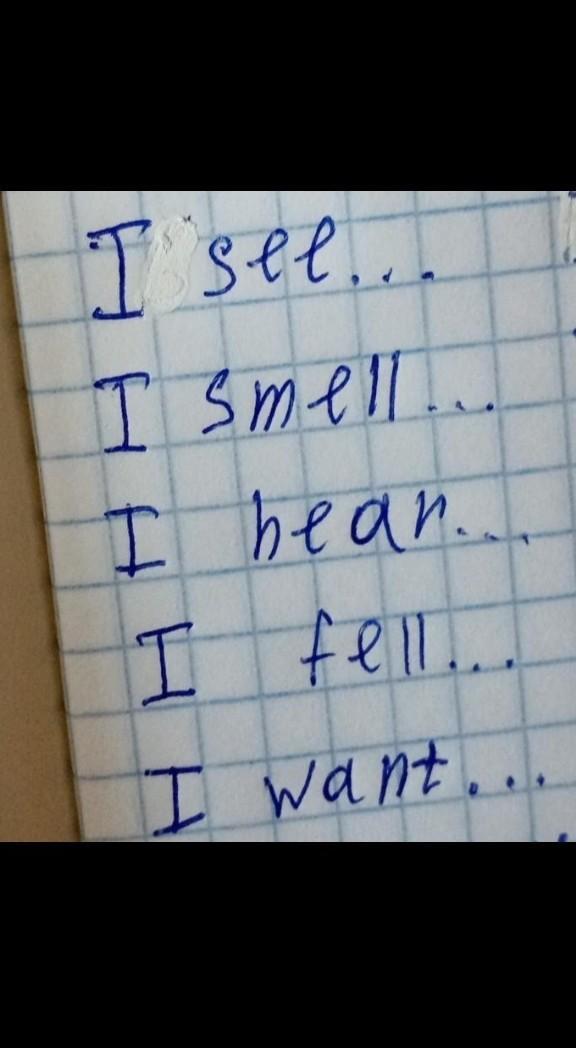 I see...
I smell...
I hear...
I fell...
I want...